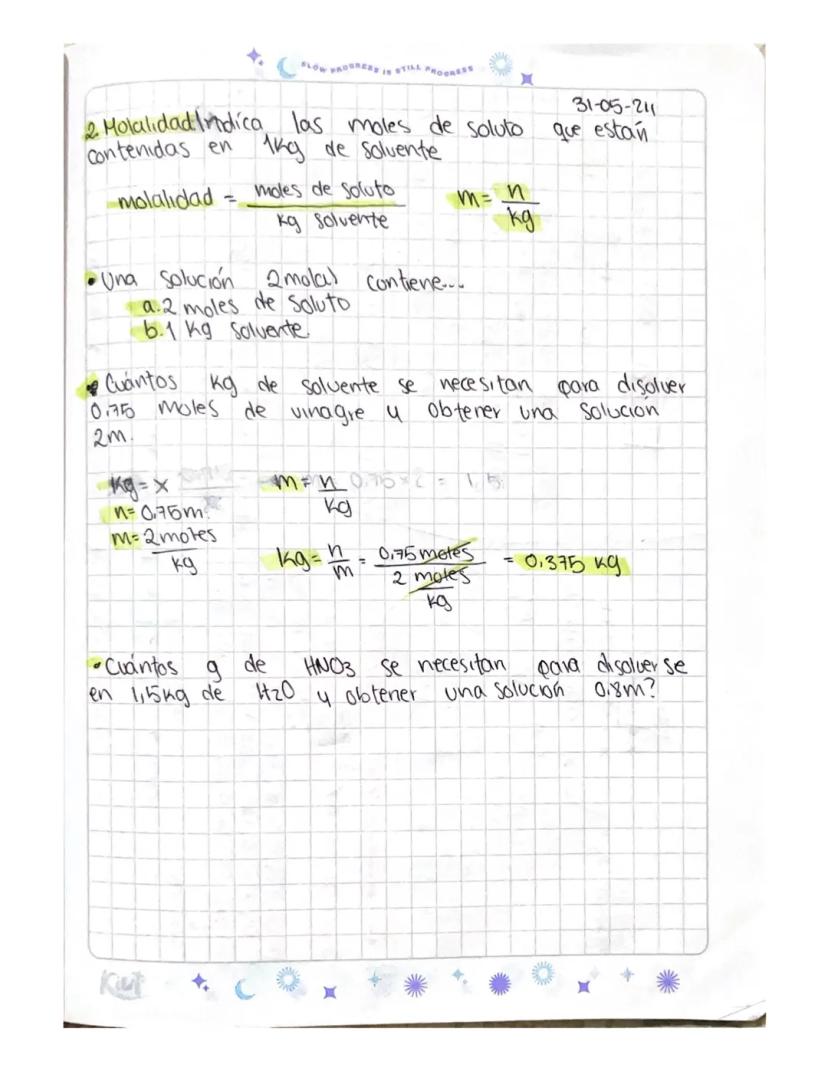 SLOW PROGRESS IS STILL PROGRESS
31-05-24
2. Molalidad: Indica las moles de soluto que están
contenidas en 1kg de solvente
molalidad = moles de soluto / kg solvente m = n / kg
• Una solución 2molal contiene...
a. 2 moles de soluto
b. 1 kg solvente.
• Cuántos kg de solvente se necesitan para disolver
0,75 moles de vinagre y obtener una solución
2m.
kg = x m = n / kg 0,75 x 2 = 1,5
n = 0,75m.
m = 2moles / kg
kg = n / m = 0,75 moles / 2 moles / kg = 0,375 kg
• Cuántos g de HNO3 se necesitan para disolverse
en 1,5kg de H2O y obtener una solución 0,8m?
Kiut